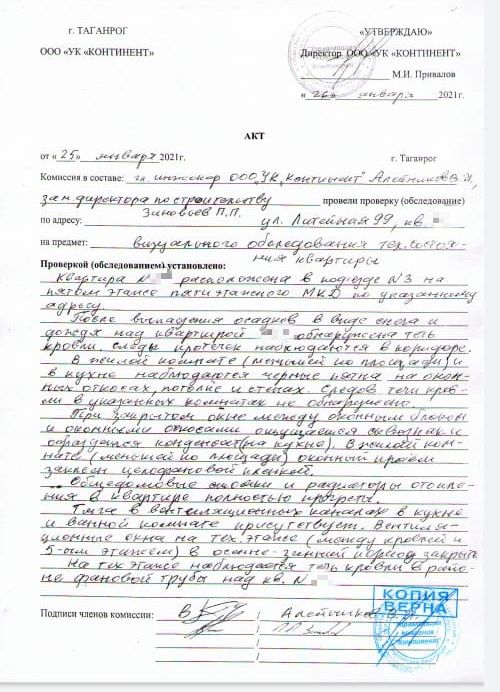 г. ТАГАНРОГ «УТВЕРЖДАЮ»
ООО «УК «КОНТИНЕНТ» Директор ООО «УК «КОНТИНЕНТ»
М.И. Привалов
« 26 » января 2021г.
АКТ
от « 25 » января 2021г. г. Таганрог
Комиссия в составе: гл. инженер ООО „УК „Континент"
зам. директора по строительству провели проверку (обследование)
Зиновьев П.П.
по адресу: ул. Литейная 99, кв.
на предмет: визуального обследования тех. состоя-
ния квартиры
Проверкой (обследованием) установлено:
Квартира № расположена в подъезде №3 на
пятом этаже пятиэтажного МКД по указанному
адресу.
После выпадения осадков в виде снега и
дождя над квартирой обнаружена течь
кровли. Следы протечек наблюдаются в коридоре.
В жилой комнате (меньшей по площади) и
в кухне наблюдаются черные пятна на окон-
ных откосах, потолке и стенах. Следов течи кров-
ли в указанных комнатах не обнаружено.
При закрытом окне между оконным блоком
и оконными откосами ощущается сквозняк и
образуется конденсат (на кухне). В жилой ком-
нате (меньшей по площади) оконный проем
заклеен целофановой пленкой.
Общедомовые стояки и радиаторы отопле-
ния в квартире полностью прогреты.
Тяга в вентиляционных каналах в кухне
и ванной комнате присутствует. Вентиля-
ционные окна на тех. этаже (между кровлей и
5-ым этажем) в осенне-зимний период закрыты.
На тех этаже наблюдается течь кровли в райо-
не фановой трубы над кв. №
КОПИЯ
ВЕРНА
Подписи членов комиссии: